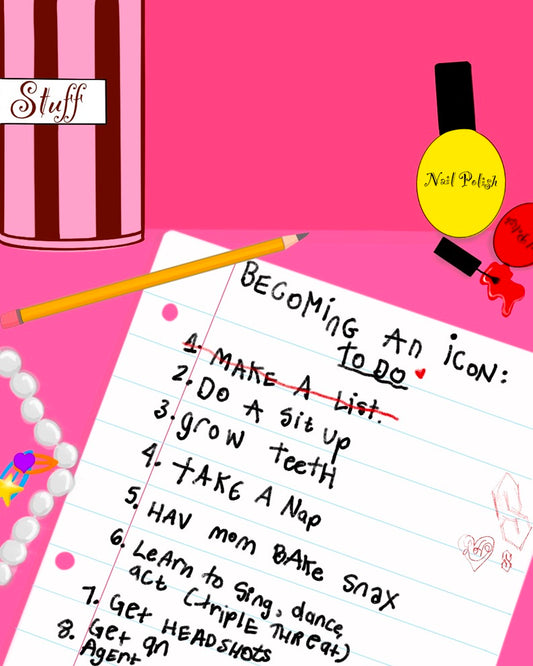 Stuff
Nail Polish
BECOMING An icoN:
TO DO
1. MAKE A List.
2. DO A Sit UP
3. grow teetH
4. TAKE A Nap
5. HAV mom BAKe snax
6. LeArn to Sing, dance,
act (triple THreat)
7. Get HEADSHOTS
8. Get an
Agent